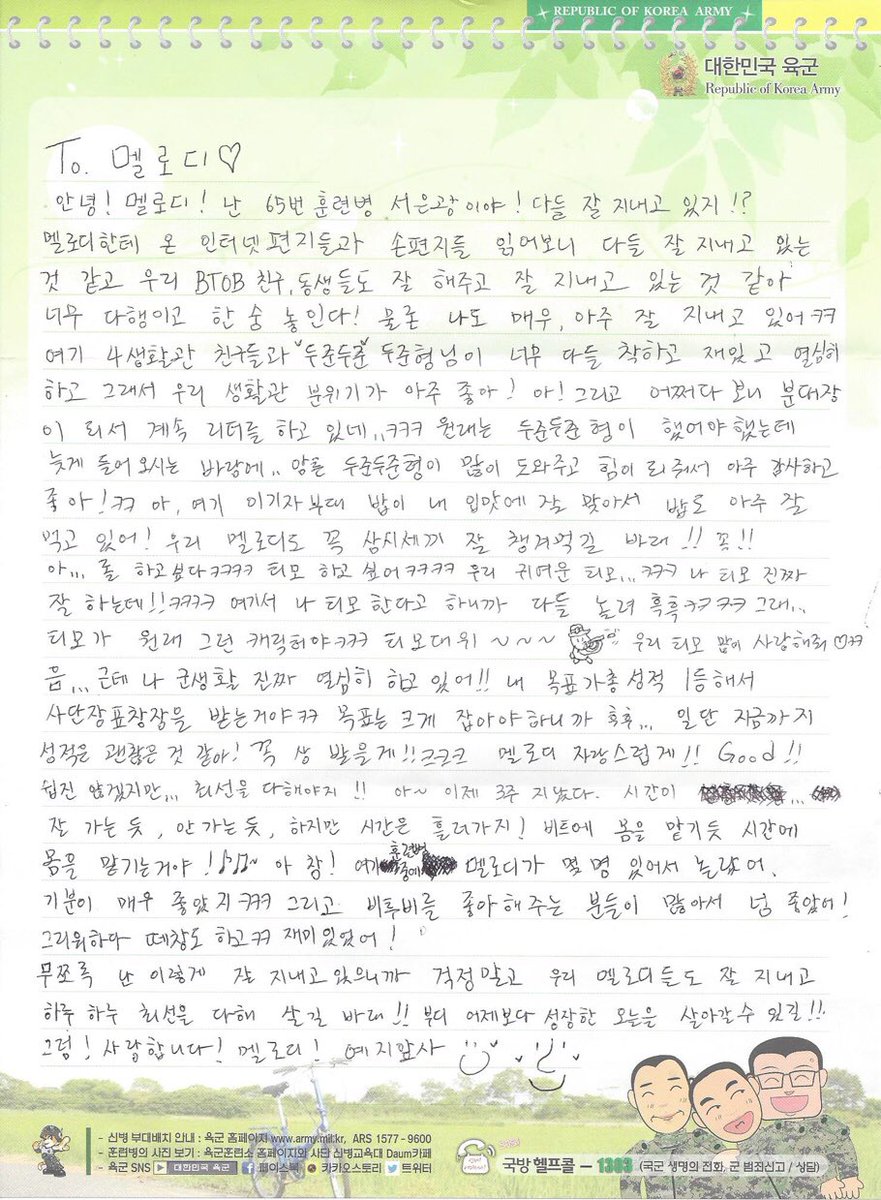 REPUBLIC OF KOREA ARMY
대한민국 육군
Republic of Korea Army
To. 멜로디♡
안녕! 멜로디! 난 65번 훈련병 서은광이야! 다들 잘 지내고 있지!?
멜로디한테 온 인터넷편지들과 손편지를 읽어보니 다들 잘 지내고 있는
것 같고 우리 BTOB 친구, 동생들도 잘 해주고 잘 지내고 있는 것 같아
너무 다행이고 한 숨 놓인다! 물론 나도 매우, 아주 잘 지내고 있어ㅋㅋ
여기 4생활관 친구들과 "두준두준" 두준형님이 너무 다들 착하고 재밌고 열심히
하고 그래서 우리 생활관 분위기가 아주 좋아! 아! 그리고 어쩌다 보니 분대장
이 되서 계속 리더를 하고 있네..ㅋㅋㅋ 원래는 두준두준 형이 했어야 했는데
늦게 들어오시는 바람에.. 암튼 두준두준형이 많이 도와주고 힘이 되줘서 아주 감사하고
좋아!ㅋㅋ 아, 여기 이기자부대 밥이 내 입맛에 잘 맞아서 밥도 아주 잘
먹고 있어! 우리 멜로디도 꼭 삼시세끼 잘 챙겨먹길 바래!! 꼭!!
아... 롤 하고싶다ㅋㅋㅋㅋ 티모 하고 싶어ㅋㅋㅋㅋ 우리 귀여운 티모...ㅋㅋㅋ 나 티모 진짜
잘 하는데!!ㅋㅋㅋㅋ 여기서 나 티모한다고 하니까 다들 놀려 흑흑ㅋㅋㅋㅋ 그래..
티모가 원래 그런 캐릭터야ㅋㅋㅋ 티모대위~~~ 우리 티모 많이 사랑해줘♡ㅋㅋ
음... 근데 나 군생활 진짜 열심히 하고 있어!! 내 목표가 총 성적 1등해서
사단장표창장을 받는거야ㅋㅋ 목표는 크게 잡아야하니까 훅후... 일단 지금까지
성적은 괜찮은 것 같아! 꼭 상 받을게!! ㅋㅋㅋ 멜로디 자랑스럽게!! Good!!
쉽진 않겠지만... 최선을 다해야지!! 아~ 이제 3주 지났다. 시간이 ...
잘 가는 듯, 안 가는 듯, 하지만 시간은 흘러가지! 비트에 몸을 맡기듯 시간에
몸을 맡기는거야!♪♪♪~ 아 참! 여기 훈련병 중에 멜로디가 몇 명 있어서 놀랐어.
기분이 매우 좋았지ㅋㅋㅋ 그리고 비투비를 좋아해주는 분들이 많아서 넘 좋았어!
그리워하다 떼창도 하고ㅋㅋ 재미있었어!
무쪼록 난 이렇게 잘 지내고있으니까 걱정말고 우리 멜로디들도 잘 지내고
하루 하루 최선을 다해 살길 바래!! 부디 어제보다 성장한 오늘을 살아갈 수 있길!!
그럼! 사랍합니다! 멜로디! 예지앞사
- 신병 부대배치 안내 : 육군 홈페이지 www.army.mil.kr, ARS 1577-9600
- 훈련병의 사진 보기 : 육군훈련소 홈페이지와 사단 신병교육대 Daum카페
- 육군 SNS 대한민국 육군 페이스북 카카오스토리 트위터
국방헬프콜 - 1303 (국군 생명의 전화, 군 범죄신고 / 상담)